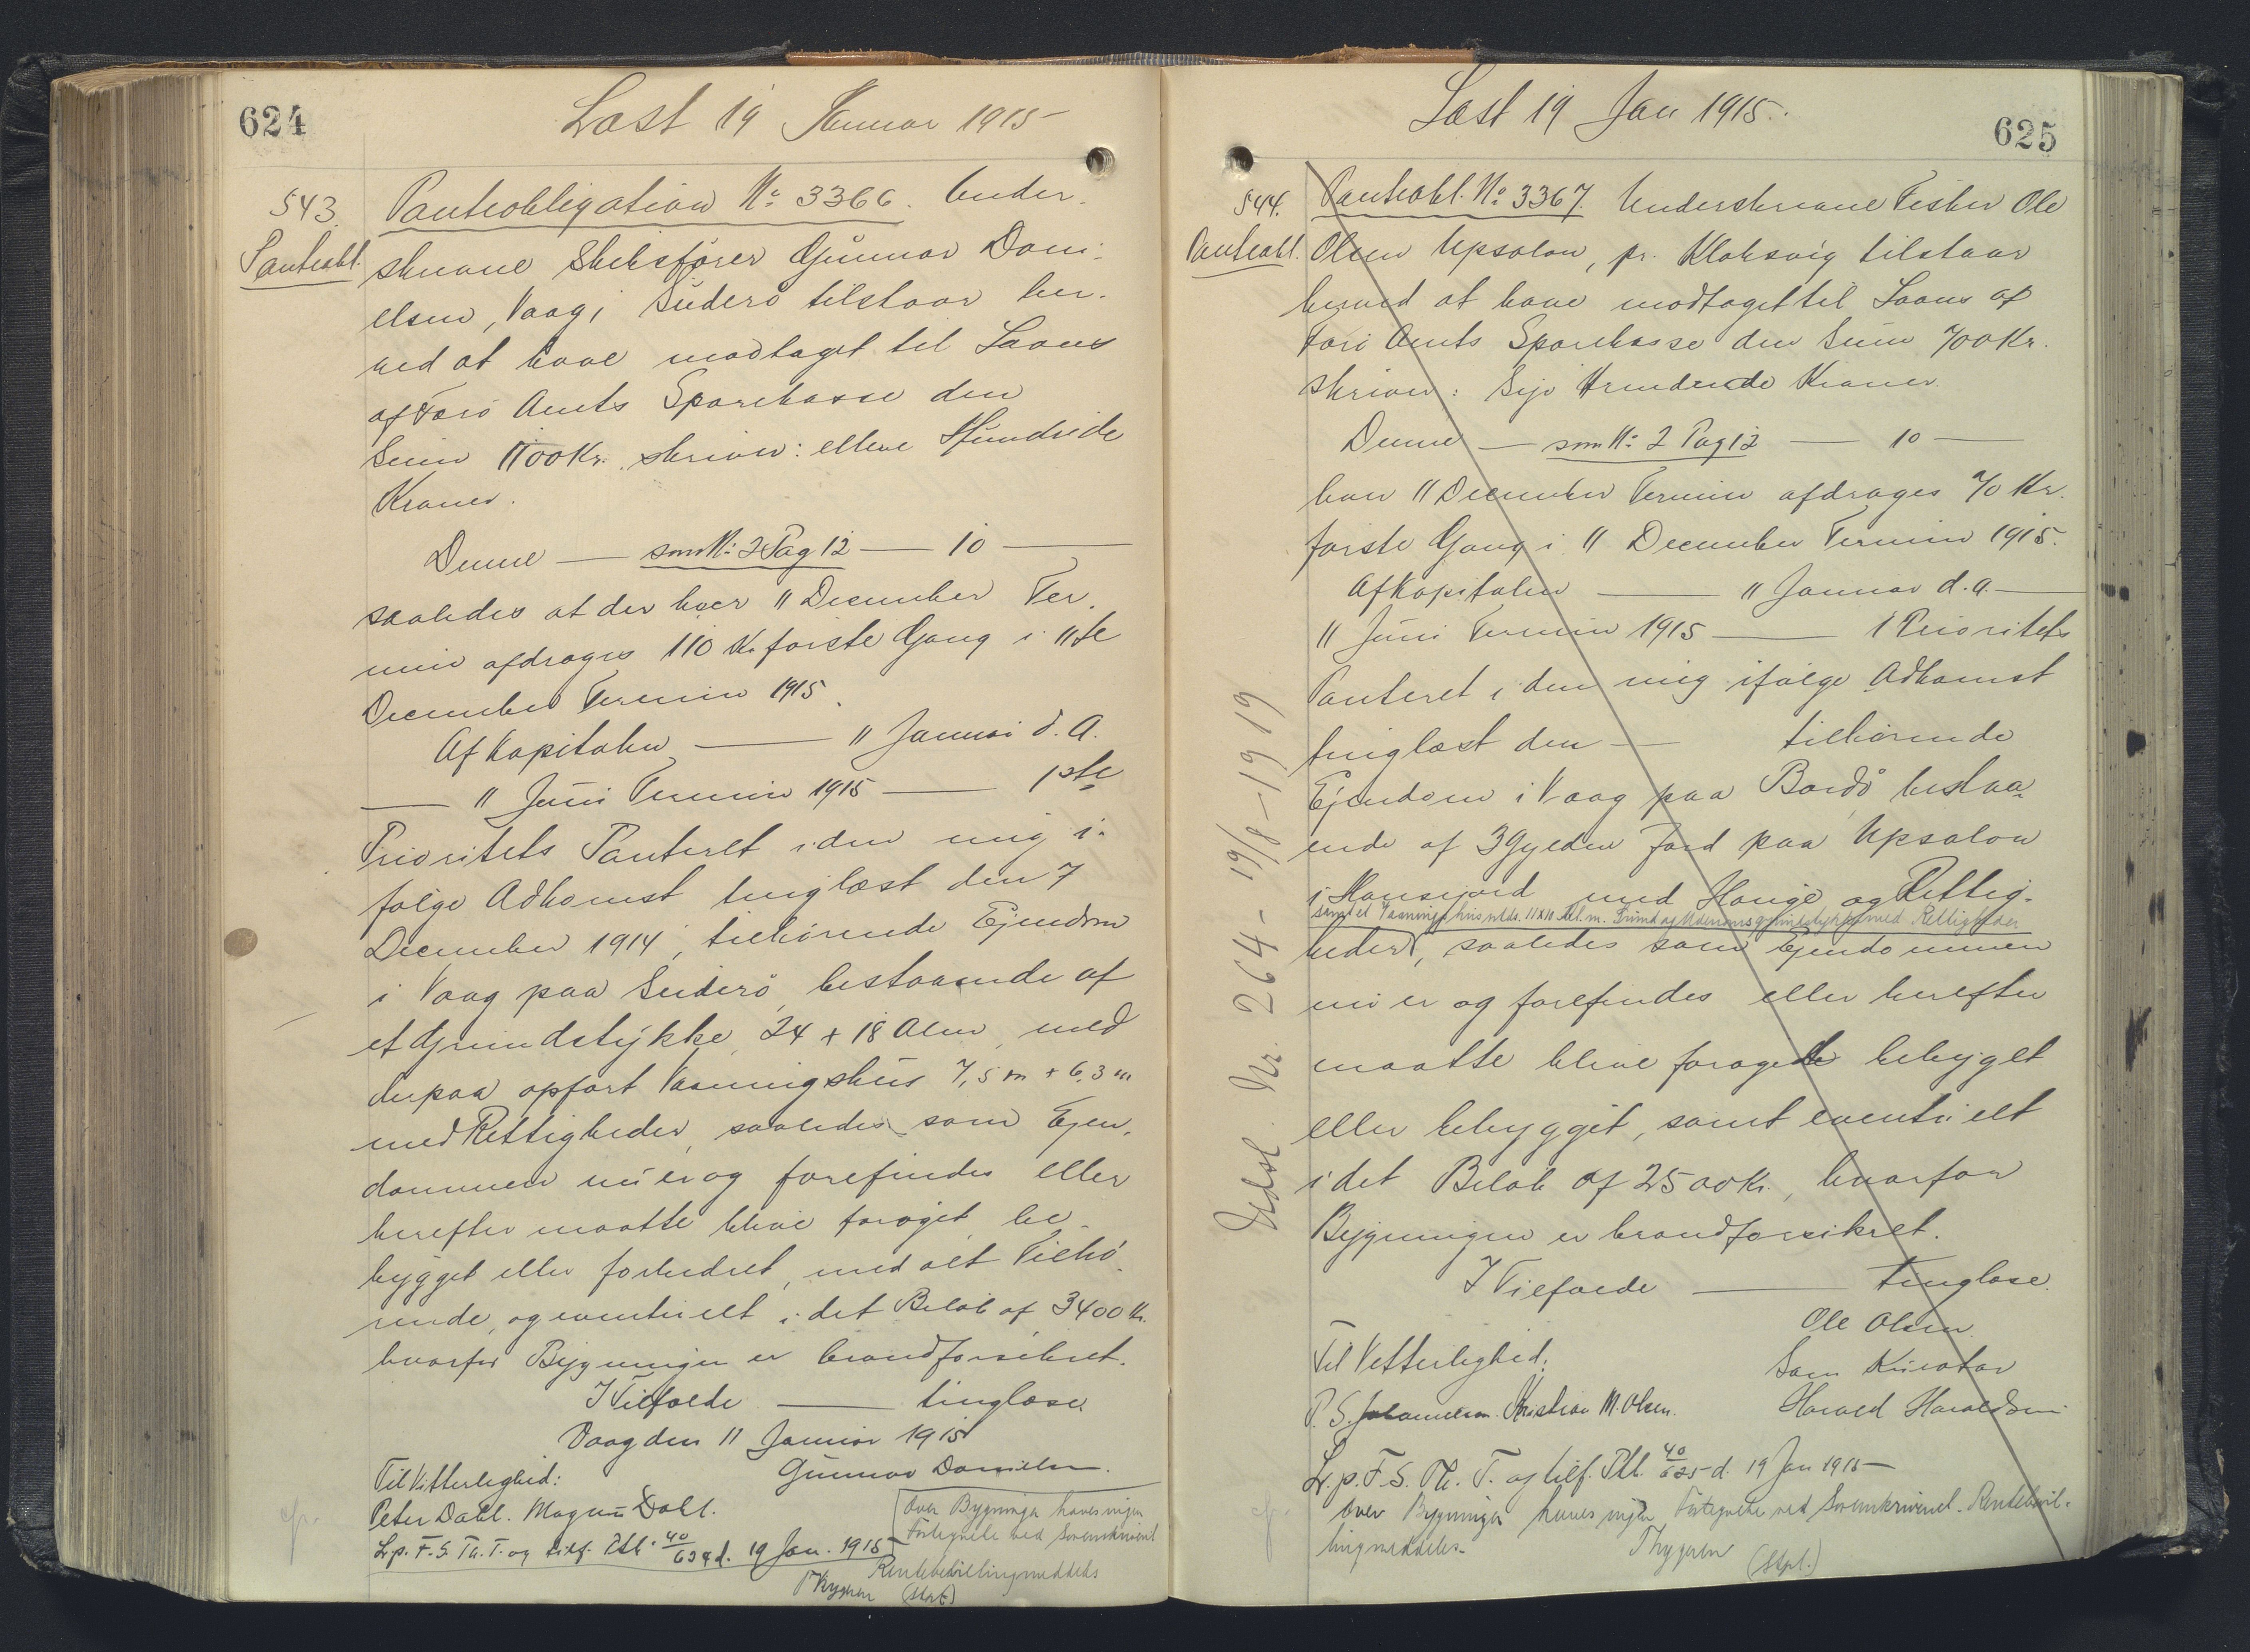 624
Læst 19 Januar 1915
543.
Panteobl.
Panteobligation No 3366. Under-
skrevne Skibsfører Gunnar Dani-
elsen, Vaag, Suderø tilstaar her-
ved at have modtaget til Laans
af Færø Amts Sparekasse den
Sum 1100 Kr. skriver: elleve Hundrede
Kroner.
Denne — som No 2 Pag 12 — 10 —
saaledes at der hver 11 December Ter-
min afdrages 110 Kr første Gang i 11te
December Termin 1915.
Af Kapitalen — 11 Januar d. A.
— 11 Juni Termin 1915 — 1ste
Prioritets Panteret i den mig i-
følge Adkomst tinglæst den 7
December 1914, tilhørende Ejendom
i Vaag paa Suderø, bestaaende af
et Grundstykke, 24 + 18 Alen, med
derpaa opført Vaaningshus 7,5 m + 6,3 m
med Rettigheder, saaledes som Ejen-
dommen nu er og forefindes eller
herefter maatte blive forøget, be-
bygget eller forbedret, med alt Tilhø-
rende, og eventuelt i det Beløb af 3400 Kr.
hvorfor Bygningen er brandforsikret.
I Tilfælde — tinglæse.
Vaag den 11 Januar 1915
Gunnar Danielsen.
Til Vitterlighed:
Peter Dahl. Magnus Dahl.
L. p. F. S. Th. T. og tilf. Ptb. 40/624 d. 19 Jan. 1915
Over Bygningen haves ingen
Fortegnelse ved Sorenskriveriet
Rentebevilling meddeles
Thygesen (Stpl.)
cf.
Læst 19 Jan 1915.
625
544.
Panteobl.
Panteobl. No 3367. Underskrevne Fisker Ole
Olsen Upsalon, pr. Klaksvig tilstaar
herved at have modtaget til Laans af
Færø Amts Sparekasse den Sum 700 Kr.
skriver: Syv Hundrede Kroner.
Denne — som No 2 Pag 12 — 10 —
hver 11 December Termin afdrages 70 Kr.
første Gang i 11 December Termin 1915.
Af Kapitalen — 11 Januar d. A. —
11 Juni Termin 1915 — 1 Prioritets
Panteret i den mig ifølge Adkomst
tinglæst den — tilhørende
Ejendom i Vaag paa Bordø bestaa-
ende af 3 Gylden Jord paa Upsalon
i Hansejord med Hauge og Rettig-
samt et Vaaningshus med Rettigheder
heder, saaledes som Ejendommen
nu er og forefindes eller herefter
maatte blive forøget bebygget
eller bebygget, samt eventuelt
i det Beløb af 2500 Kr., hvorfor
Bygningen er brandforsikret.
I Tilfælde — tinglæse.
Ole Olsen
Til Vitterlighed:
Som Kurator
P. S. Johannesen. Kristian M. Olsen.
Harald Haraldsen
L. p. F. S. Th. T. og tilf. Ptb. 40/625 d. 19 Jan 1915
Over Bygningen haves ingen Fortegnelse ved Sorenskriveriet. Rentebevil-
ling meddeles.
Thygesen (Stpl.)
cf.
Udsl. Nr. 264 - 19/8-1919